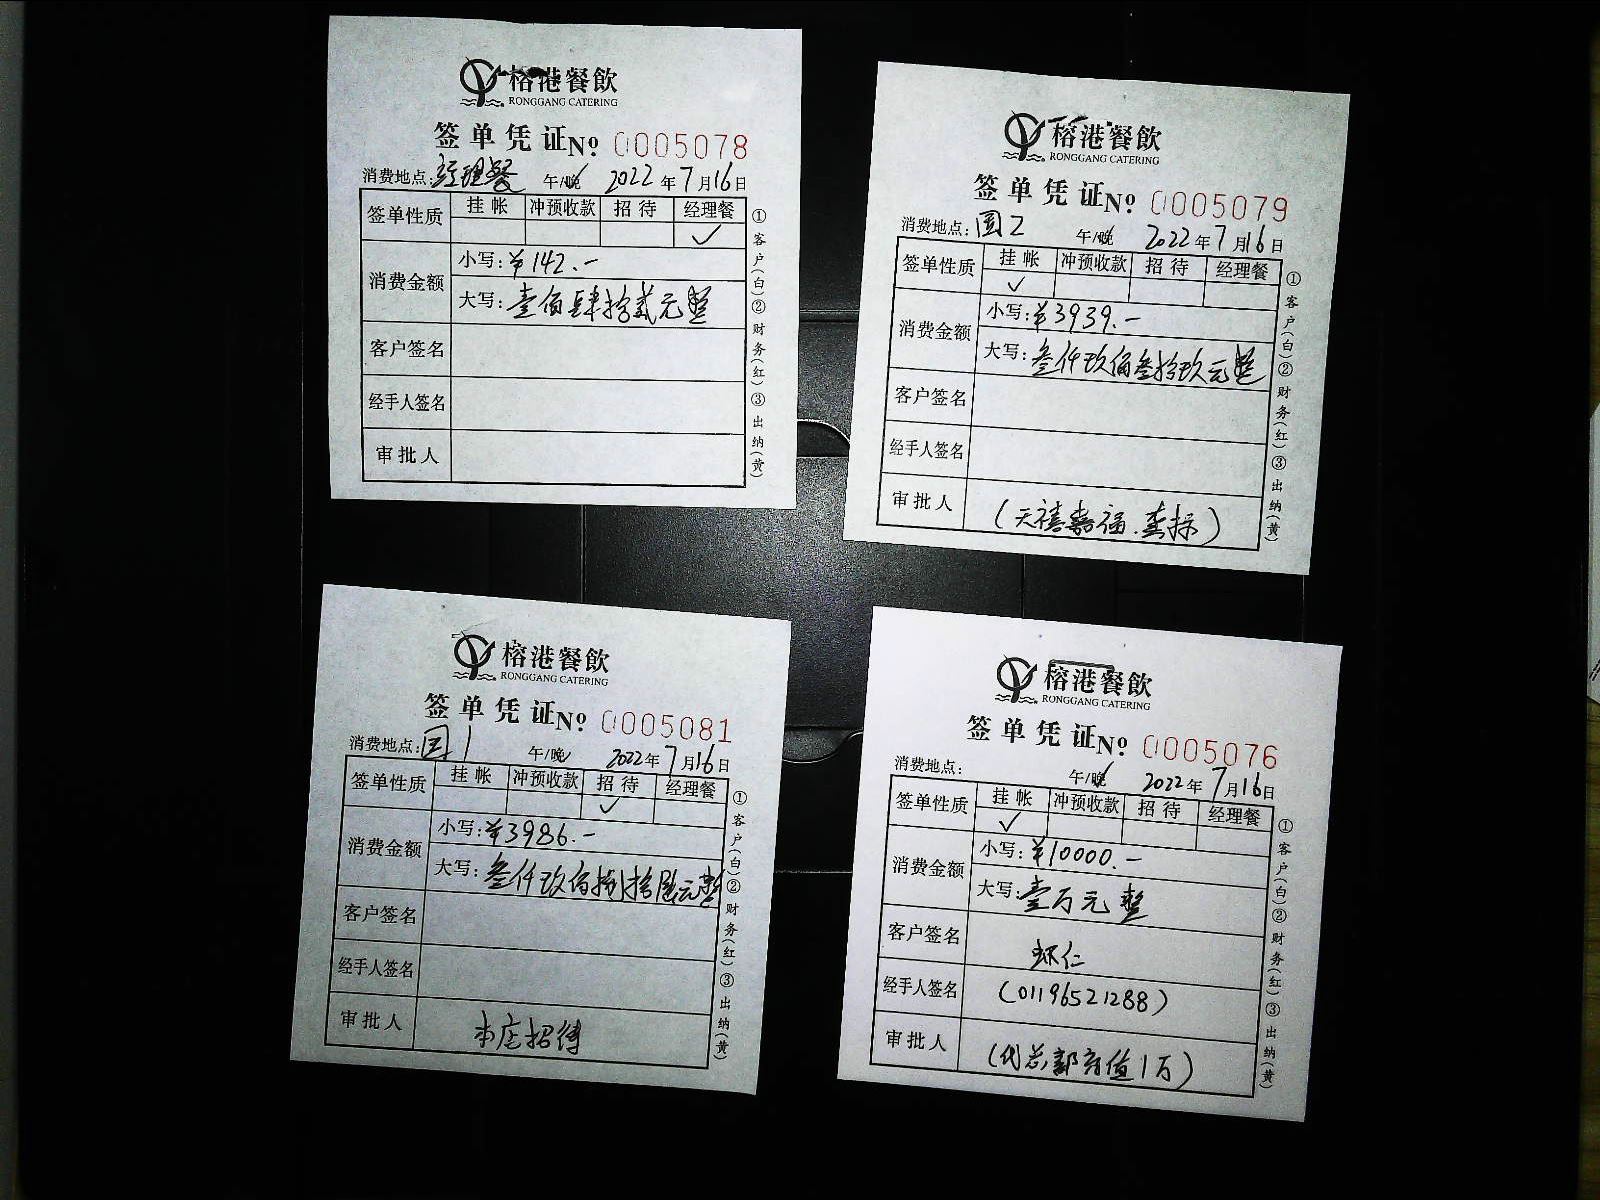 榕港餐飲
RONGGANG CATERING
签单凭证 Nº 0005078
消费地点：经理餐 午/晚 2022年7月16日
签单性质 挂帐 冲预收款 招待 经理餐
✓
消费金额
小写：¥142.-
大写：壹佰肆拾贰元整
客户签名
经手人签名
审批人
①客户(白)②财务(红)③出纳(黄)
榕港餐飲
RONGGANG CATERING
签单凭证 Nº 0005079
消费地点：圆2 午/晚 2022年7月16日
签单性质 挂帐 冲预收款 招待 经理餐
✓
消费金额
小写：¥3939.-
大写：叁仟玖佰叁拾玖元整
客户签名
经手人签名
审批人 (天禧嘉福.)
①客户(白)②财务(红)③出纳(黄)
榕港餐飲
RONGGANG CATERING
签单凭证 Nº 0005081
消费地点： 1 午/晚 2022年7月16日
签单性质 挂帐 冲预收款 招待 经理餐
✓
消费金额
小写：¥3986.-
大写：叁仟玖佰捌拾陆元整
客户签名
经手人签名
审批人 本店招待
①客户(白)②财务(红)③出纳(黄)
榕港餐飲
RONGGANG CATERING
签单凭证 Nº 0005076
消费地点： 午/晚 2022年7月16日
签单性质 挂帐 冲预收款 招待 经理餐
✓
消费金额
小写：¥10000.-
大写：壹万元整
客户签名 仁
经手人签名 (01196521288)
审批人 (代总部充值1万)
①客户(白)②财务(红)③出纳(黄)